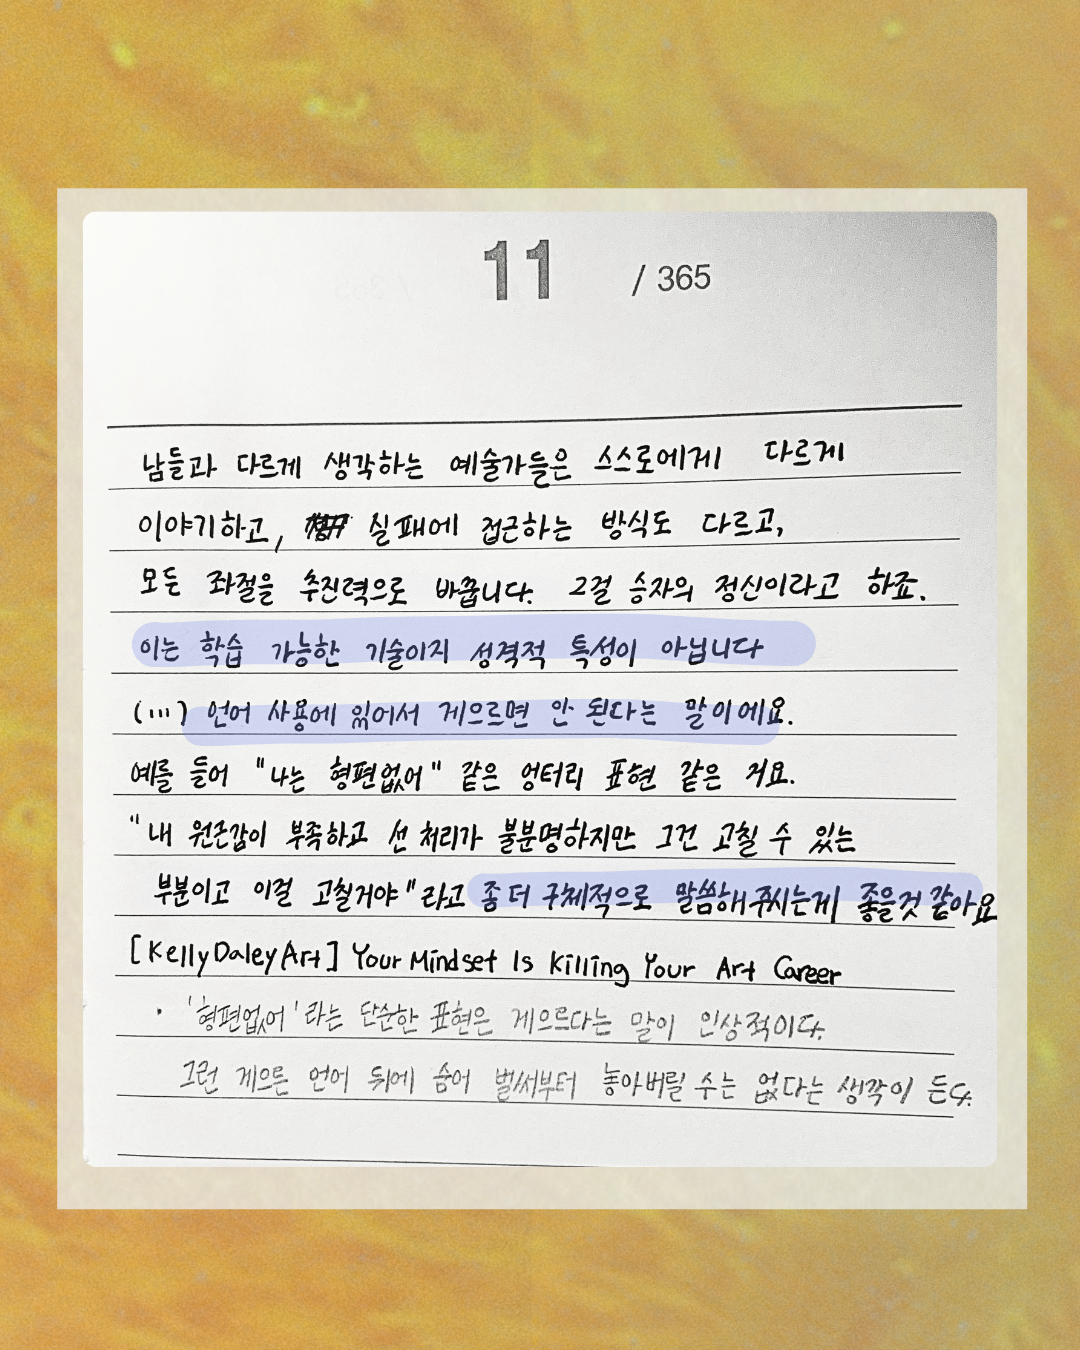 11 / 365
남들과 다르게 생각하는 예술가들은 스스로에게 다르게
이야기하고, 실패에 접근하는 방식도 다르고,
모든 좌절을 추진력으로 바꿉니다. 그걸 승자의 정신이라고 하죠.
이는 학습 가능한 기술이지 성격적 특성이 아닙니다
(...) 언어 사용에 있어서 게으르면 안 된다는 말이에요.
예를 들어 "나는 형편없어" 같은 엉터리 표현 같은 거요.
"내 원근감이 부족하고 선 처리가 불분명하지만 그건 고칠 수 있는
부분이고 이걸 고칠거야"라고 좀 더 구체적으로 말씀해주시는게 좋을것 같아요
[KellyDaleyArt] Your Mindset Is Killing Your Art Career
· '형편없어'라는 단순한 표현은 게으르다는 말이 인상적이다.
그런 게으른 언어 뒤에 숨어 벌써부터 놓아버릴 수는 없다는 생각이 든다.